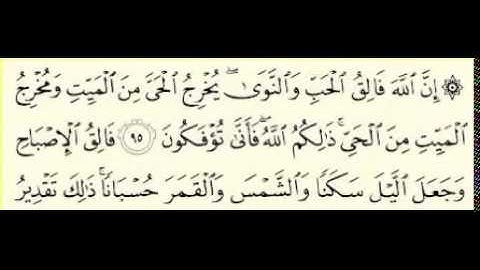 ۞ إِنَّ ٱللَّهَ فَالِقُ ٱلْحَبِّ وَٱلنَّوَىٰ ۖ يُخْرِجُ ٱلْحَىَّ مِنَ ٱلْمَيِّتِ وَمُخْرِجُ
ٱلْمَيِّتِ مِنَ ٱلْحَىِّ ۚ ذَٰلِكُمُ ٱللَّهُ ۖ فَأَنَّىٰ تُؤْفَكُونَ ۝٩٥ فَالِقُ ٱلْإِصْبَاحِ
وَجَعَلَ ٱلَّيْلَ سَكَنًا وَٱلشَّمْسَ وَٱلْقَمَرَ حُسْبَانًا ۚ ذَٰلِكَ تَقْدِيرُ